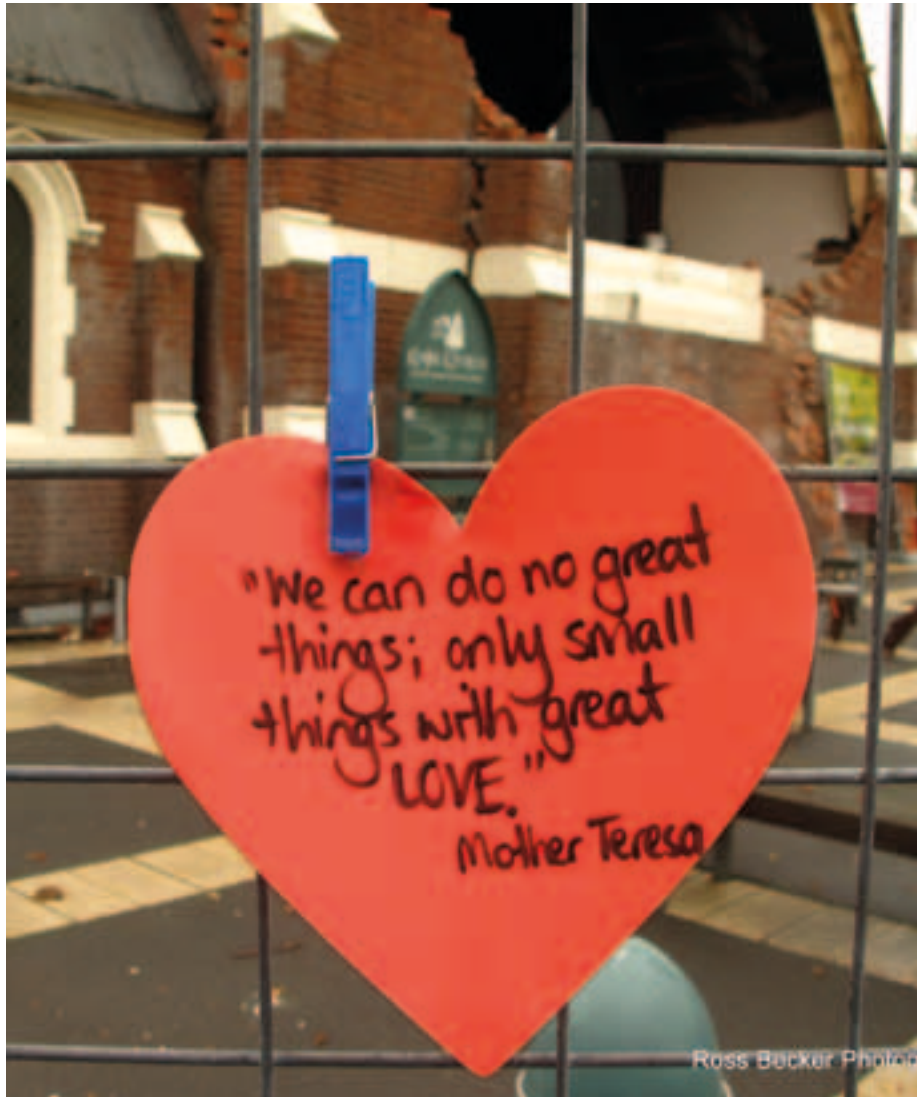 "We can do no great
things; only small
things with great
LOVE."
Mother Teresa
Ross Becker